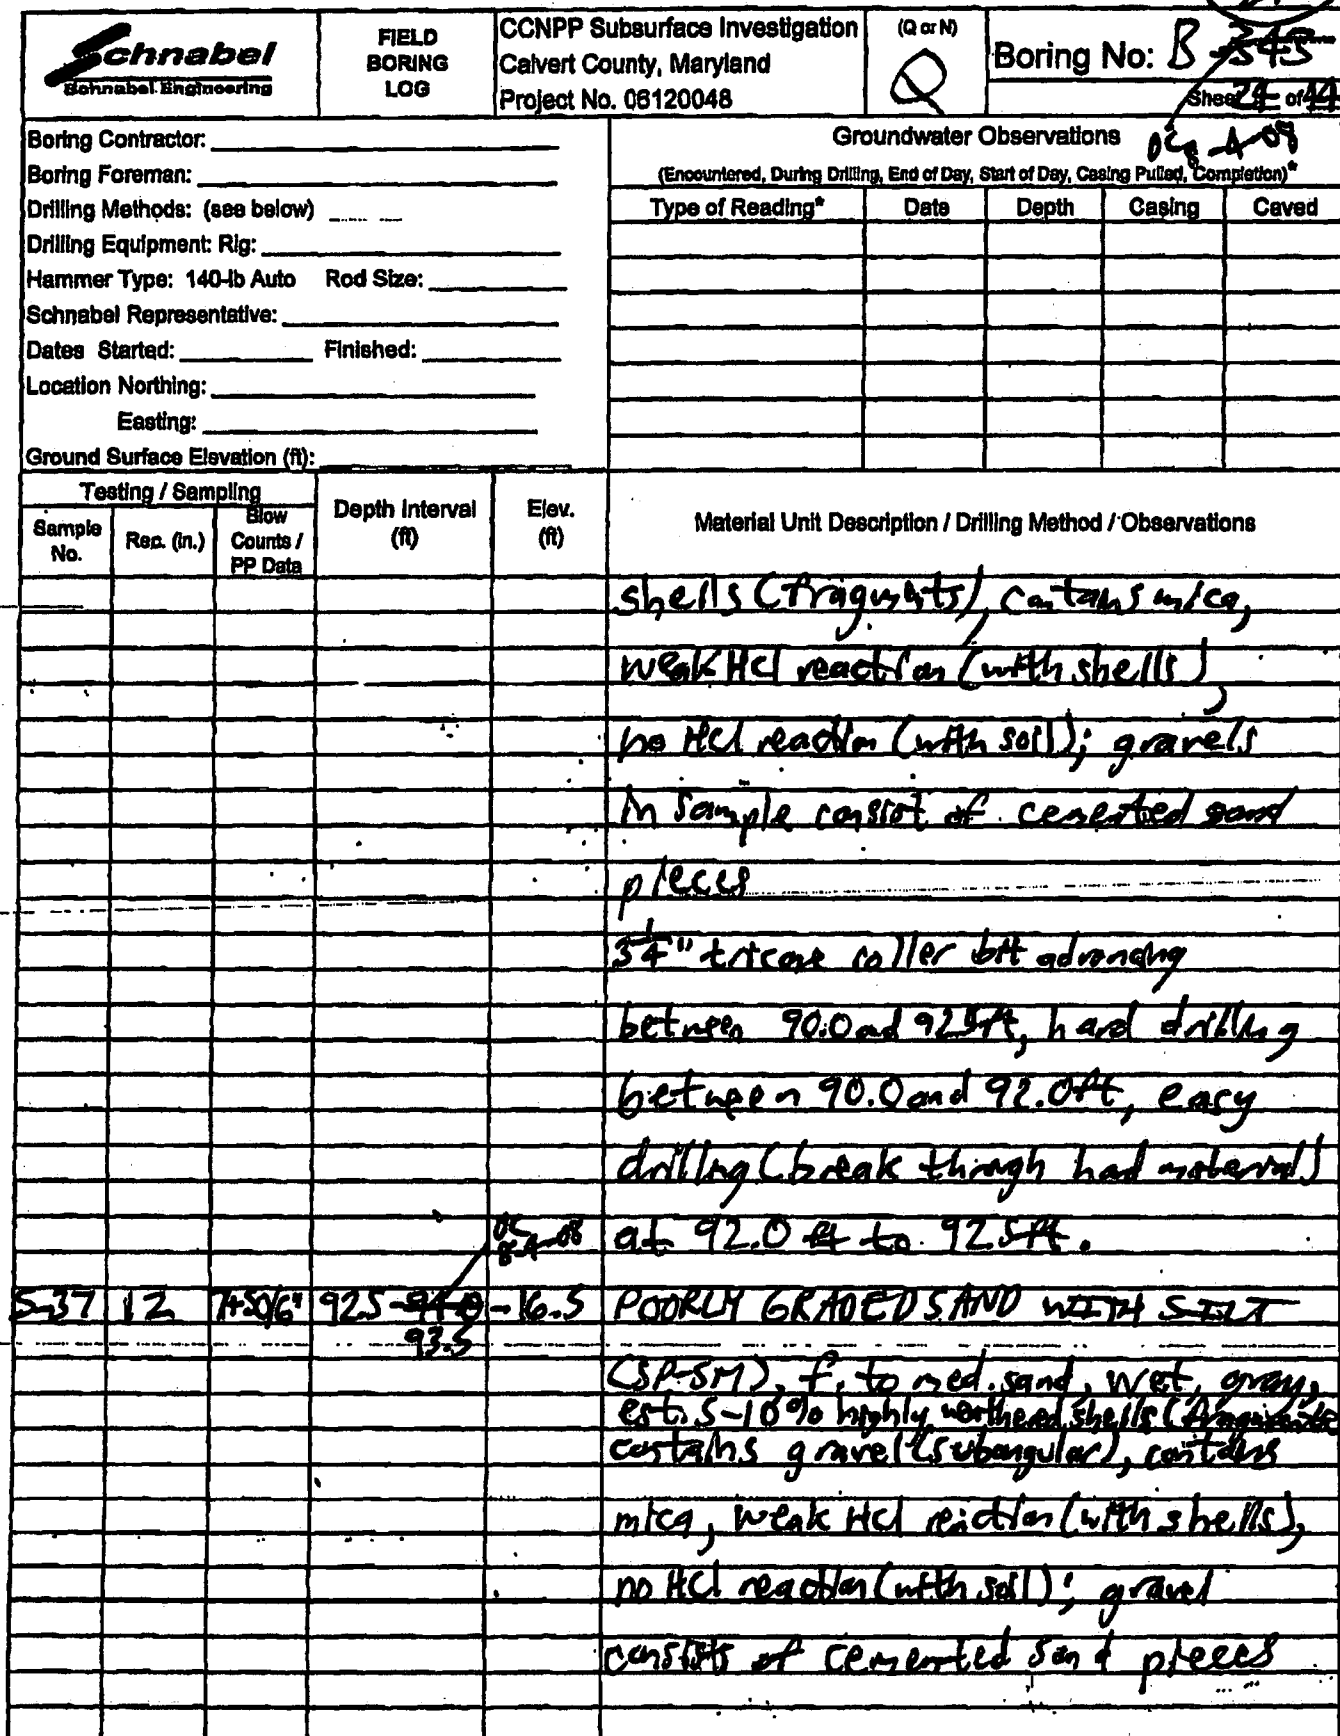 Schnabel
Schnabel Engineering
FIELD
BORING
LOG
CCNPP Subsurface Investigation
Calvert County, Maryland
Project No. 06120048
(Q or N)
Q
Boring No: B-
Sheet of
Boring Contractor:
Boring Foreman:
Drilling Methods: (see below)
Drilling Equipment: Rig:
Hammer Type: 140-lb Auto Rod Size:
Schnabel Representative:
Dates Started: Finished:
Location Northing:
Easting:
Ground Surface Elevation (ft):
Groundwater Observations
8-4-08
(Encountered, During Drilling, End of Day, Start of Day, Casing Pulled, Completion)*
Type of Reading* Date Depth Casing Caved
Testing / Sampling
Sample No. Rec. (in.) Blow Counts / PP Data
Depth Interval (ft)
Elev. (ft)
Material Unit Description / Drilling Method / Observations
shells (fragments), contains mica,
weak HCl reaction (with shells),
no HCl reaction (with soil); gravels
in sample consist of cemented sand
pieces
3 1/4" tricone roller bit advancing
between 90.0 and 92.5ft, hard drilling
between 90.0 and 92.0ft, easy
drilling (break through hard material)
8-4-08
at 92.0 ft to 92.5ft.
S-37 12 7+50/6" 92.5-94.0 -16.5 POORLY GRADED SAND WITH SILT
93.5
(SP-SM), f. to med. sand, wet, gray,
est. 5-10% highly weathered shells (fragments
contains gravel (subangular), contains
mica, weak HCl reaction (with shells),
no HCl reaction (with soil); gravel
consists of cemented sand pieces